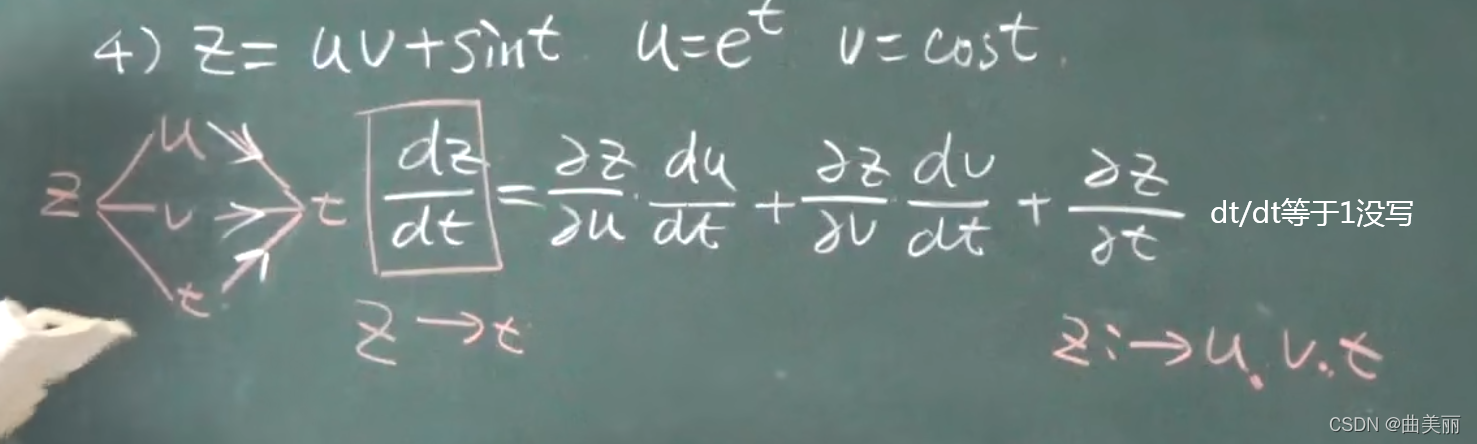 4) z = uv+sint u=e^t v=cost.
z u v t t dz/dt = ∂z/∂u · du/dt + ∂z/∂v · dv/dt + ∂z/∂t dt/dt等于1没写
z → t z: → u, v, t
CSDN @曲美丽